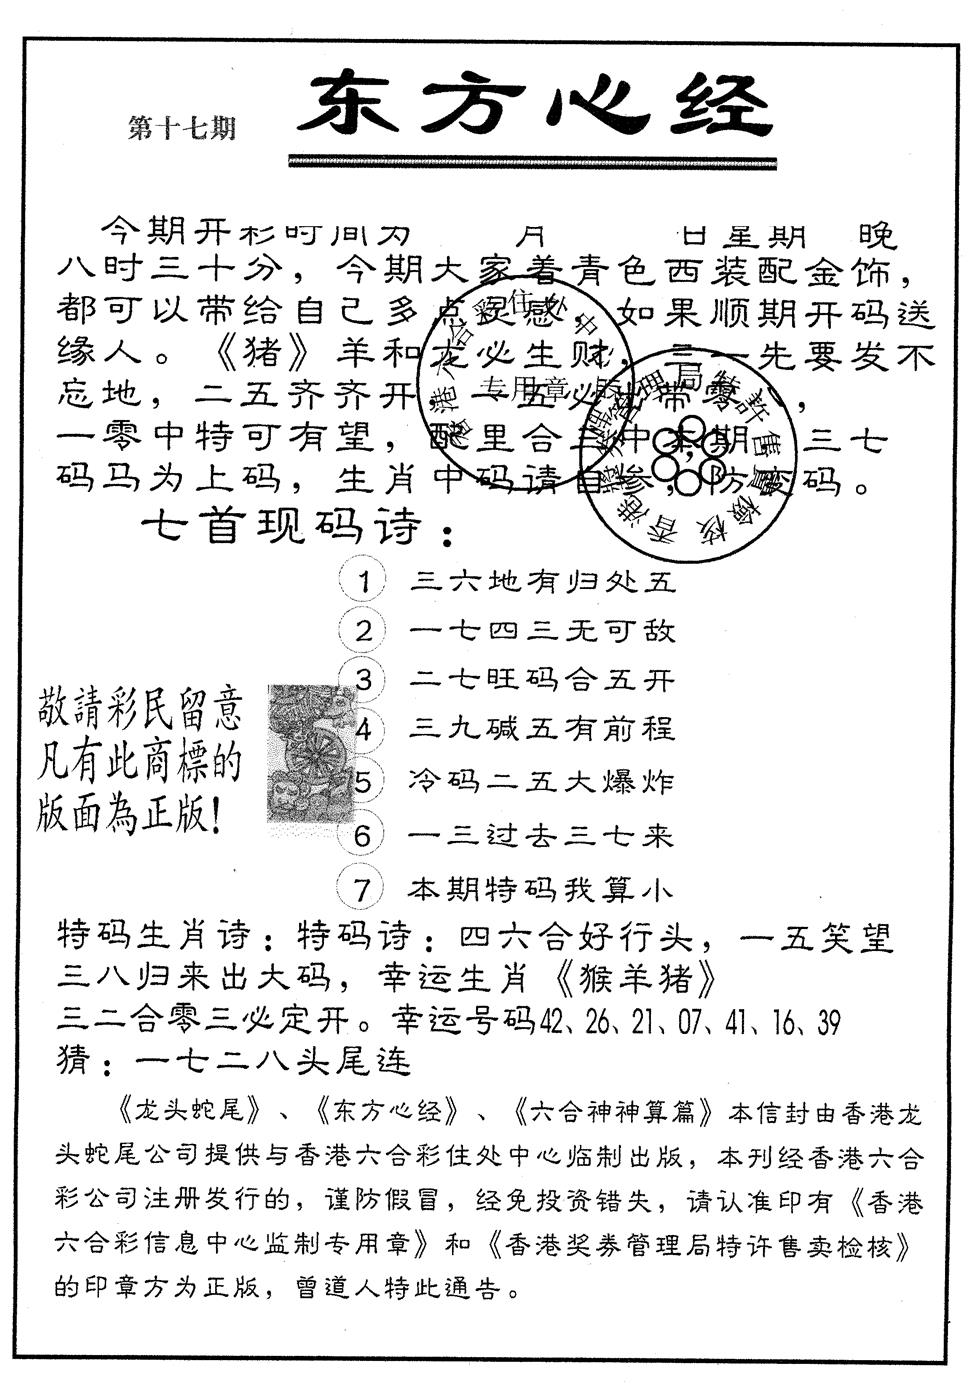 东方心经
第十七期
今期开彩时间为 月 日星期 晚
八时三十分，今期大家着青色西装配金饰，
都可以带给自己多点灵感，如果顺期开码送
缘人。《猪》羊和龙必生财，三一先要发不
忘地，二五齐齐开，一五必 带零 ，
一零中特可有望，配里合三中本期，三七
码马为上码，生肖中码请自参，防 码。
香港六合彩住处中
专用章
香港奖券管理局特許售賣檢核
七首现码诗：
1 三六地有归处五
2 一七四三无可敌
3 二七旺码合五开
4 三九碱五有前程
5 冷码二五大爆炸
6 一三过去三七来
7 本期特码我算小
敬請彩民留意
凡有此商標的
版面為正版!
特码生肖诗：特码诗：四六合好行头，一五笑望
三八归来出大码，幸运生肖《猴羊猪》
三二合零三必定开。幸运号码42、26、21、07、41、16、39
猜：一七二八头尾连
《龙头蛇尾》、《东方心经》、《六合神神算篇》本信封由香港龙
头蛇尾公司提供与香港六合彩住处中心临制出版，本刊经香港六合
彩公司注册发行的，谨防假冒，经免投资错失，请认准印有《香港
六合彩信息中心监制专用章》和《香港奖券管理局特许售卖检核》
的印章方为正版，曾道人特此通告。